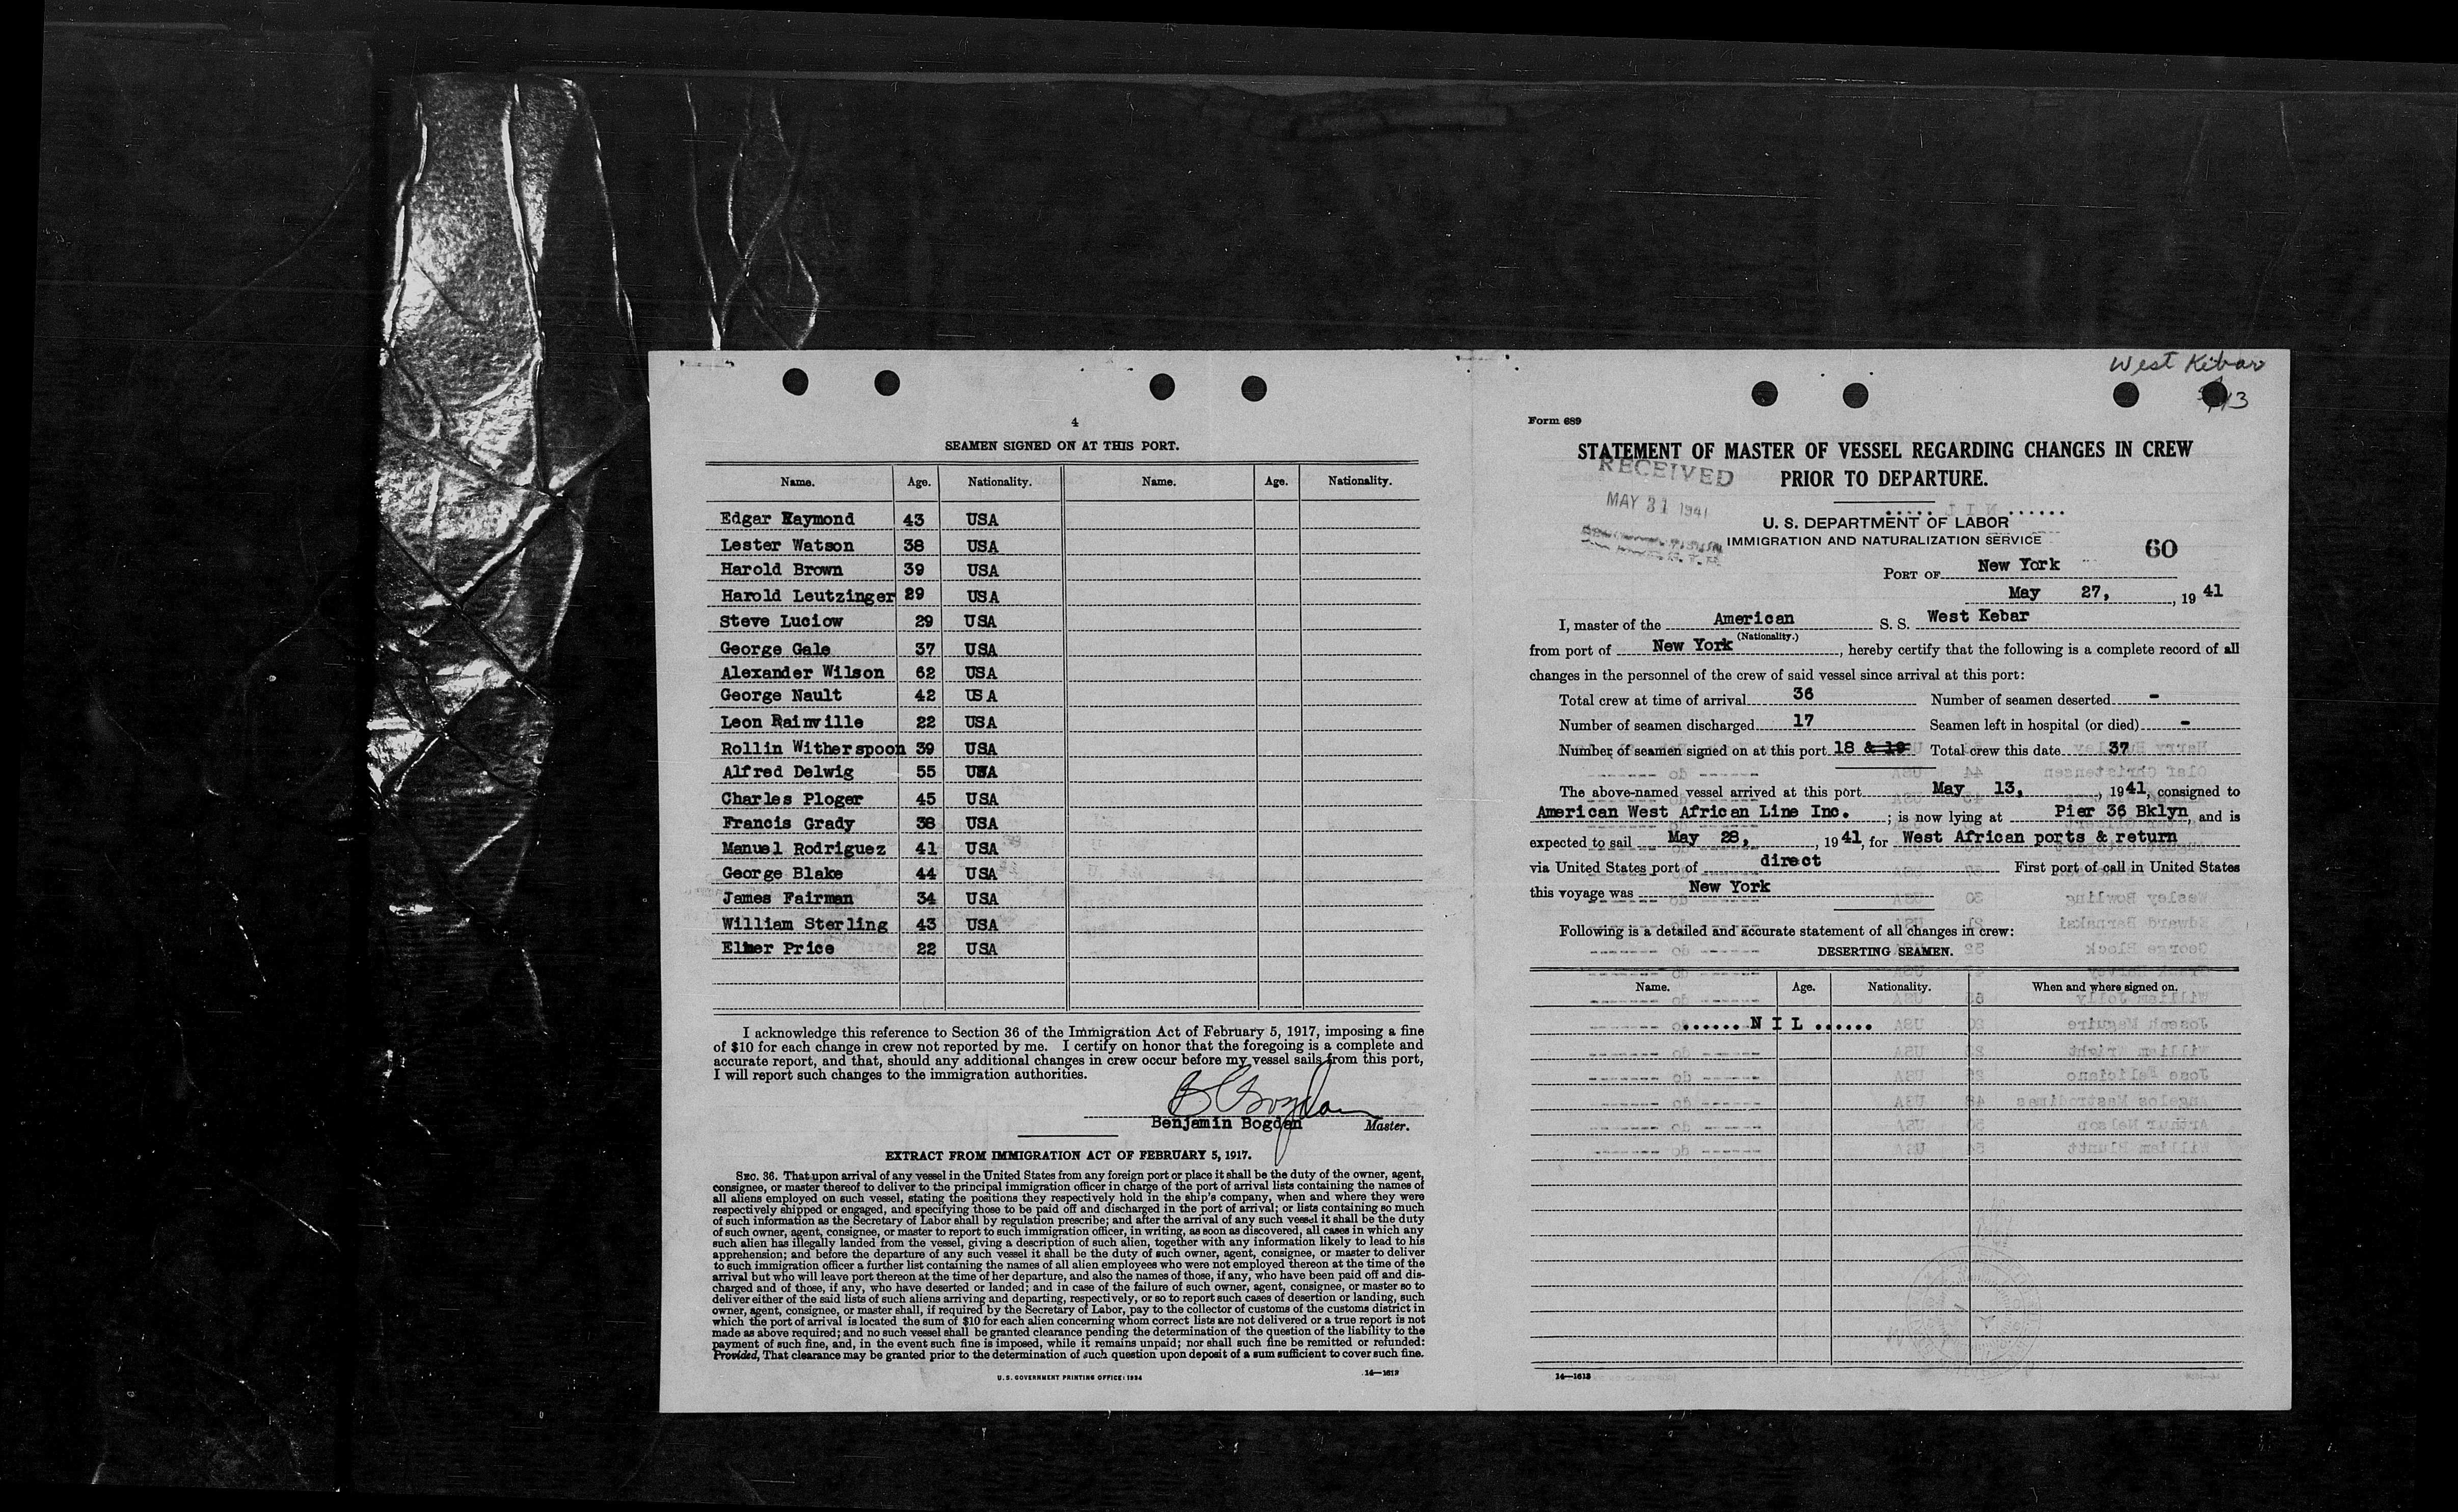 4
SEAMEN SIGNED ON AT THIS PORT.
Name. Age. Nationality. Name. Age. Nationality.
Edgar Raymond 43 USA
Lester Watson 38 USA
Harold Brown 39 USA
Harold Leutzinger 29 USA
Steve Luciow 29 USA
George Gale 37 USA
Alexander Wilson 62 USA
George Nault 42 US A
Leon Rainville 22 USA
Rollin Witherspoon 39 USA
Alfred Delwig 55 USA
Charles Ploger 45 USA
Francis Grady 38 USA
Manuel Rodriguez 41 USA
George Blake 44 USA
James Fairman 34 USA
William Sterling 43 USA
Elmer Price 22 USA
I acknowledge this reference to Section 36 of the Immigration Act of February 5, 1917, imposing a fine
of $10 for each change in crew not reported by me. I certify on honor that the foregoing is a complete and
accurate report, and that, should any additional changes in crew occur before my vessel sails from this port,
I will report such changes to the immigration authorities.
B Bogdan
Benjamin Bogden Master.
EXTRACT FROM IMMIGRATION ACT OF FEBRUARY 5, 1917.
SEC. 36. That upon arrival of any vessel in the United States from any foreign port or place it shall be the duty of the owner, agent,
consignee, or master thereof to deliver to the principal immigration officer in charge of the port of arrival lists containing the names of
all aliens employed on such vessel, stating the positions they respectively hold in the ship's company, when and where they were
respectively shipped or engaged, and specifying those to be paid off and discharged in the port of arrival; or lists containing so much
of such information as the Secretary of Labor shall by regulation prescribe; and after the arrival of any such vessel it shall be the duty
of such owner, agent, consignee, or master to report to such immigration officer, in writing, as soon as discovered, all cases in which any
such alien has illegally landed from the vessel, giving a description of such alien, together with any information likely to lead to his
apprehension; and before the departure of any such vessel it shall be the duty of such owner, agent, consignee, or master to deliver
to such immigration officer a further list containing the names of all alien employees who were not employed thereon at the time of the
arrival but who will leave port thereon at the time of her departure, and also the names of those, if any, who have been paid off and dis-
charged and of those, if any, who have deserted or landed; and in case of the failure of such owner, agent, consignee, or master so to
deliver either of the said lists of such aliens arriving and departing, respectively, or so to report such cases of desertion or landing, such
owner, agent, consignee, or master shall, if required by the Secretary of Labor, pay to the collector of customs of the customs district in
which the port of arrival is located the sum of $10 for each alien concerning whom correct lists are not delivered or a true report is not
made as above required; and no such vessel shall be granted clearance pending the determination of the question of the liability to the
payment of such fine, and, in the event such fine is imposed, while it remains unpaid; nor shall such fine be remitted or refunded:
Provided, That clearance may be granted prior to the determination of such question upon deposit of a sum sufficient to cover such fine.
U. S. GOVERNMENT PRINTING OFFICE: 1934 14—1613
West Kebar
5/13
Form 689
STATEMENT OF MASTER OF VESSEL REGARDING CHANGES IN CREW
PRIOR TO DEPARTURE.
RECEIVED
MAY 31 1941
U. S. DEPARTMENT OF LABOR
IMMIGRATION AND NATURALIZATION SERVICE
60
PORT OF New York
May 27, , 19 41
I, master of the American S. S. West Kebar
(Nationality.)
from port of New York , hereby certify that the following is a complete record of all
changes in the personnel of the crew of said vessel since arrival at this port:
Total crew at time of arrival 36 Number of seamen deserted -
Number of seamen discharged 17 Seamen left in hospital (or died) -
Number of seamen signed on at this port 18 & 19 Total crew this date 37
The above-named vessel arrived at this port May 13, , 1941, consigned to
American West African Line Inc. ; is now lying at Pier 36 Bklyn, and is
expected to sail May 28, , 19 41, for West African ports & return
via United States port of direct First port of call in United States
this voyage was New York
Following is a detailed and accurate statement of all changes in crew:
DESERTING SEAMEN.
Name. Age. Nationality. When and where signed on.
....... N I L ......
14—1613